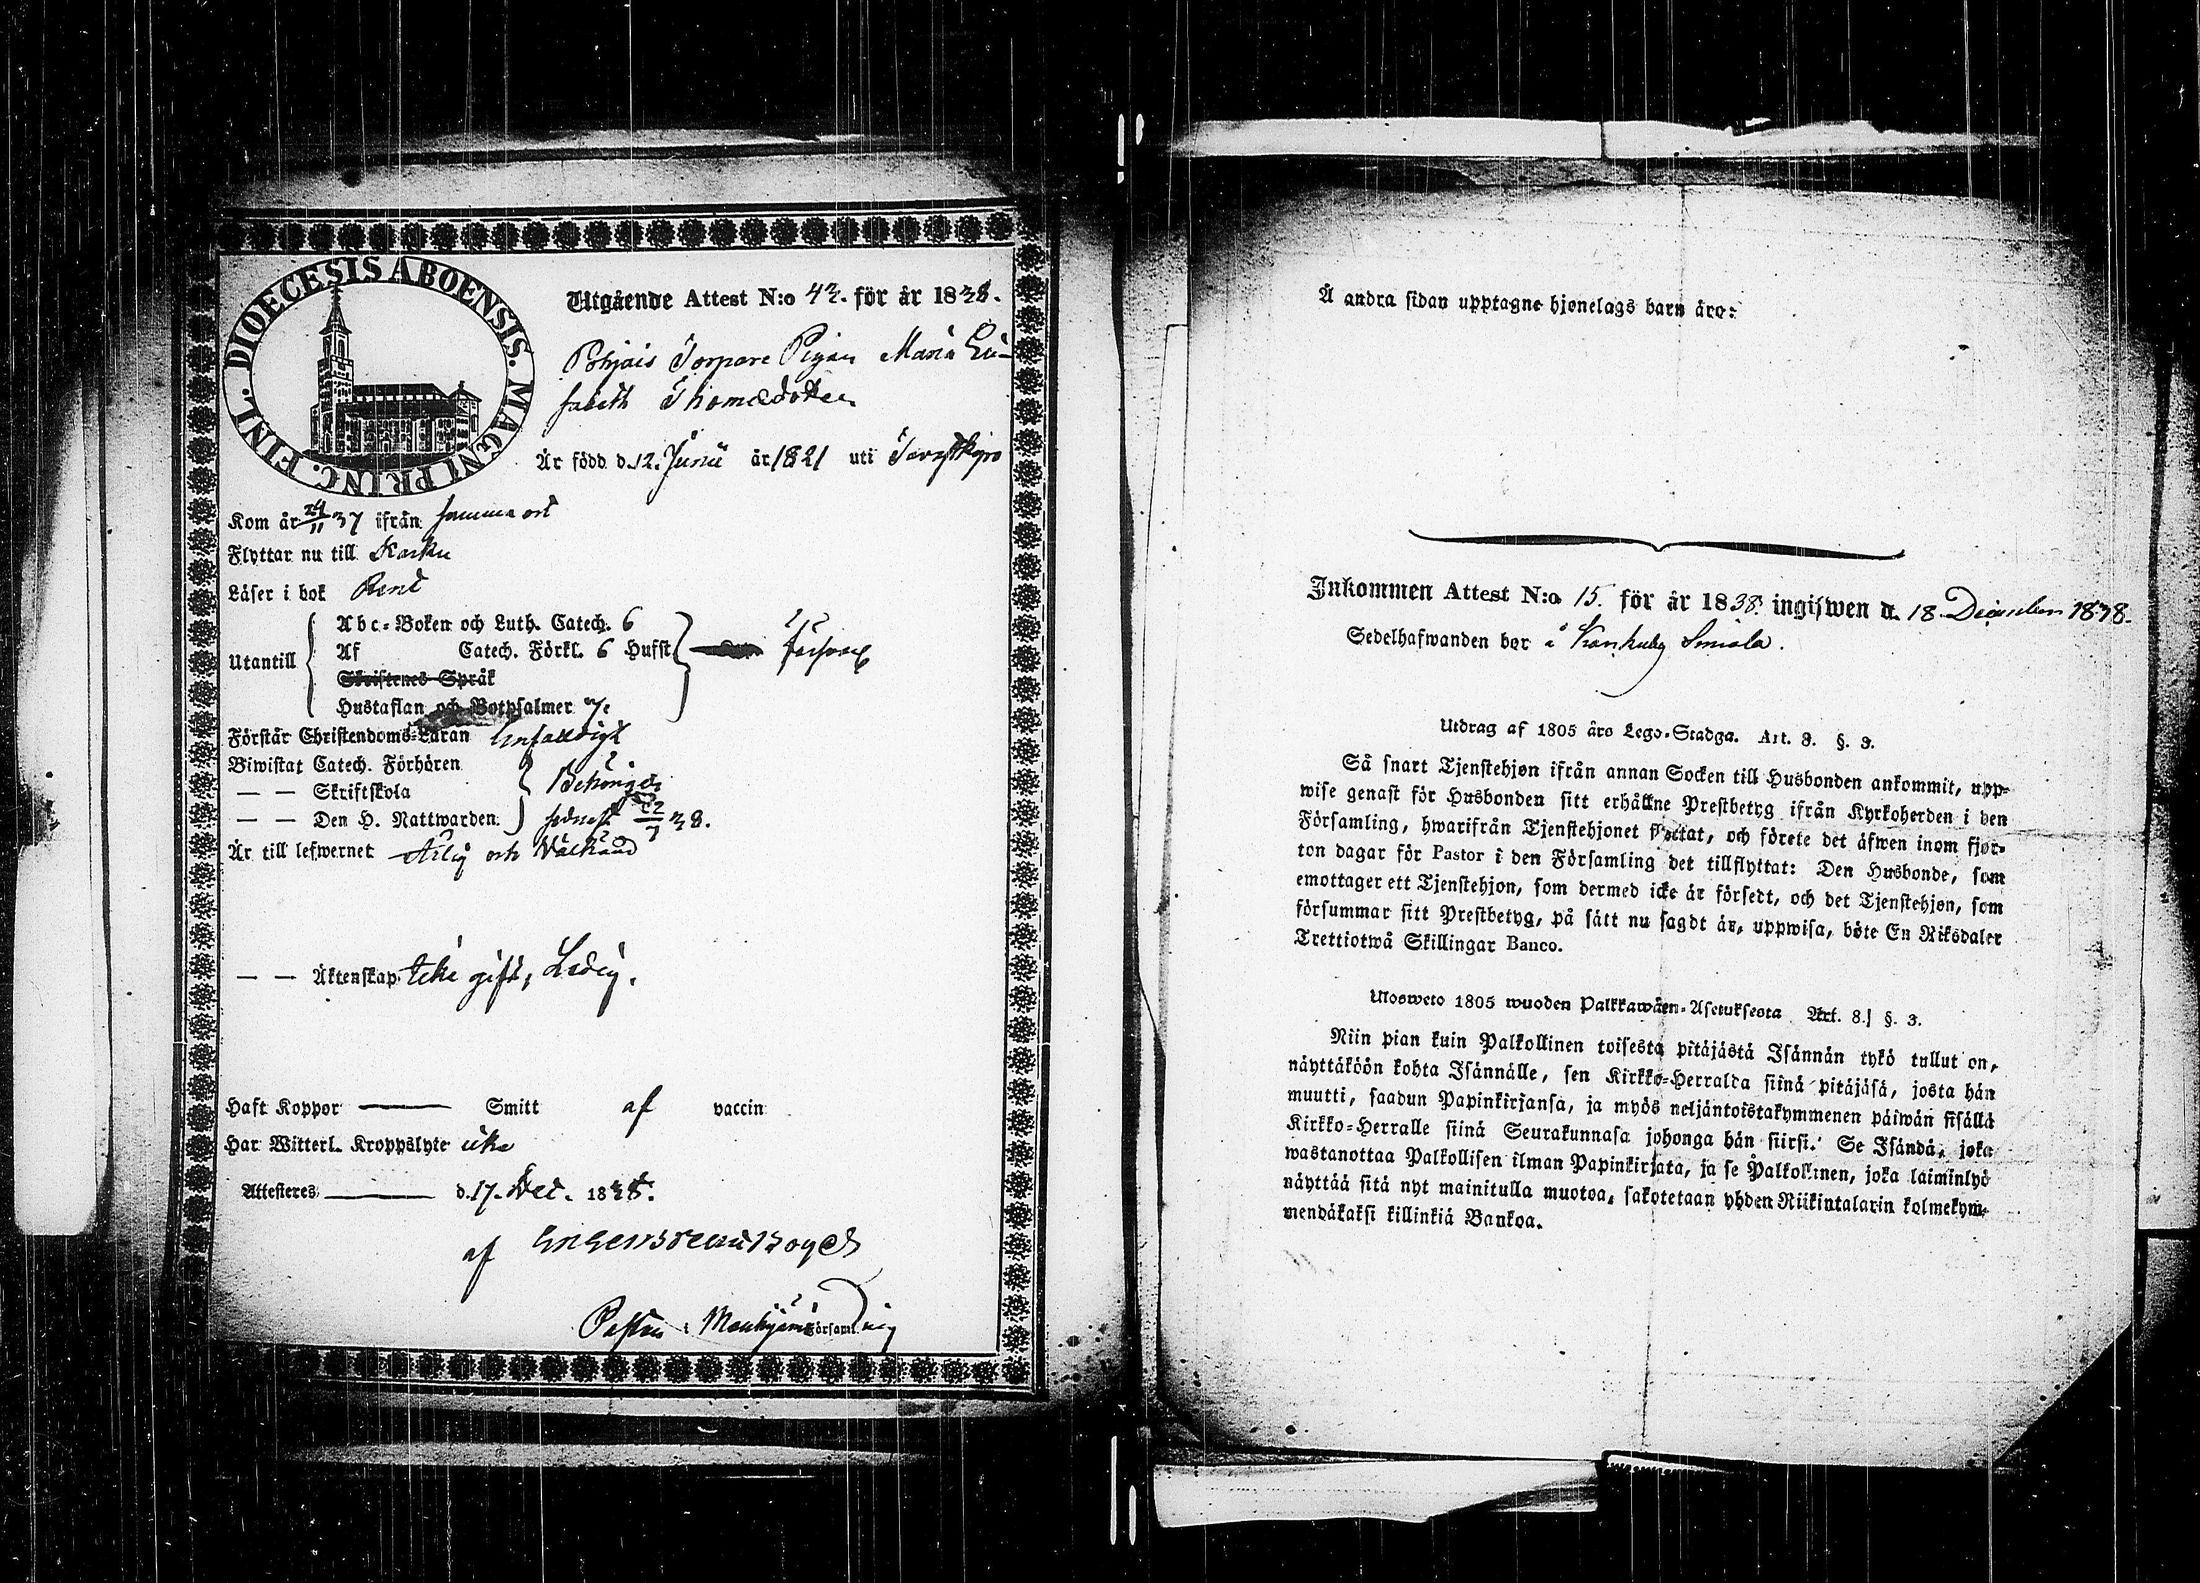 DIOECESIS ABOENSIS. MAGNI PRINC. FINL.
Utgående Attest N:o 42. för år 1838.
Pohjais Torpare Pigan Maria Eli-
sabeth Thomædotter
Är född d. 12. Junii år 1821 uti Tavastkyro
Kom år 24/11 37 ifrån samma ort
Flyttar nu till Karku
Läser i bok Rent
Utantill
Abc-Boken och Luth. Catech. 6
Af Catech. Förkl. 6 Hufst
Skriftenes Språk
Hustaflan och Botpsalmer 7.
Förstår Christendoms-Läran Enfaldigt
Biwistat Catech. Förhören
— — Skriftskola
— — Den H. Nattwarden
Behörigt
sednast 22/7 38.
Är till lefwernet Ärlig och Wälkänd
— — Äktenskap Icke gift, Ledig.
Haft Koppor — Smitt af vaccin
Har Witterl. Kroppslyte icke
Attesteres — d. 17. Dec. 1838.
af
Pastor i Mouhijärvi Församling
Å andra sidan upptagne hjonelags barn äro:
Inkommen Attest N:o 15. för år 1838. ingifwen d. 18 December 1838.
Sedelhafwanden bor å
Utdrag af 1805 års Lego-Stadga. Art. 8. §. 3.
Så snart Tjenstehjon ifrån annan Socken till Husbonden ankommit, upp-
wise genast för Husbonden sitt erhållne Prestbetyg ifrån Kyrkoherden i den
Församling, hwarifrån Tjenstehjonet flyttat, och förete det äfwen inom fjor-
ton dagar för Pastor i den Församling det tillflyttat: Den Husbonde, som
emottager ett Tjenstehjon, som dermed icke är försedt, och det Tjenstehjon, som
försummar sitt Prestbetyg, på sätt nu sagdt är, uppwisa, böte En Riksdaler
Trettiotwå Skillingar Banco.
Ulosweto 1805 wuoden Palkkawäen-Asetuksesta Art. 8. §. 3.
Niin pian kuin Palkollinen toisesta pitäjästä Isännän tykö tullut on,
näyttäköön kohta Isännälle, sen Kirkko-Herralda siinä pitäjäsä, josta hän
muutti, saadun Papinkirjansa, ja myös neljäntoistakymmenen päiwän sisällä
Kirkko-Herralle siinä Seurakunnasa johonga hän siirsi. Se Isändä, joka
wastanottaa Palkollisen ilman Papinkirjata, ja se Palkollinen, joka laiminlyö
näyttää sitä nyt mainitulla muotoa, sakotetaan yhden Riikintalarin kolmekym-
mendäkaksi killinkiä Bankoa.